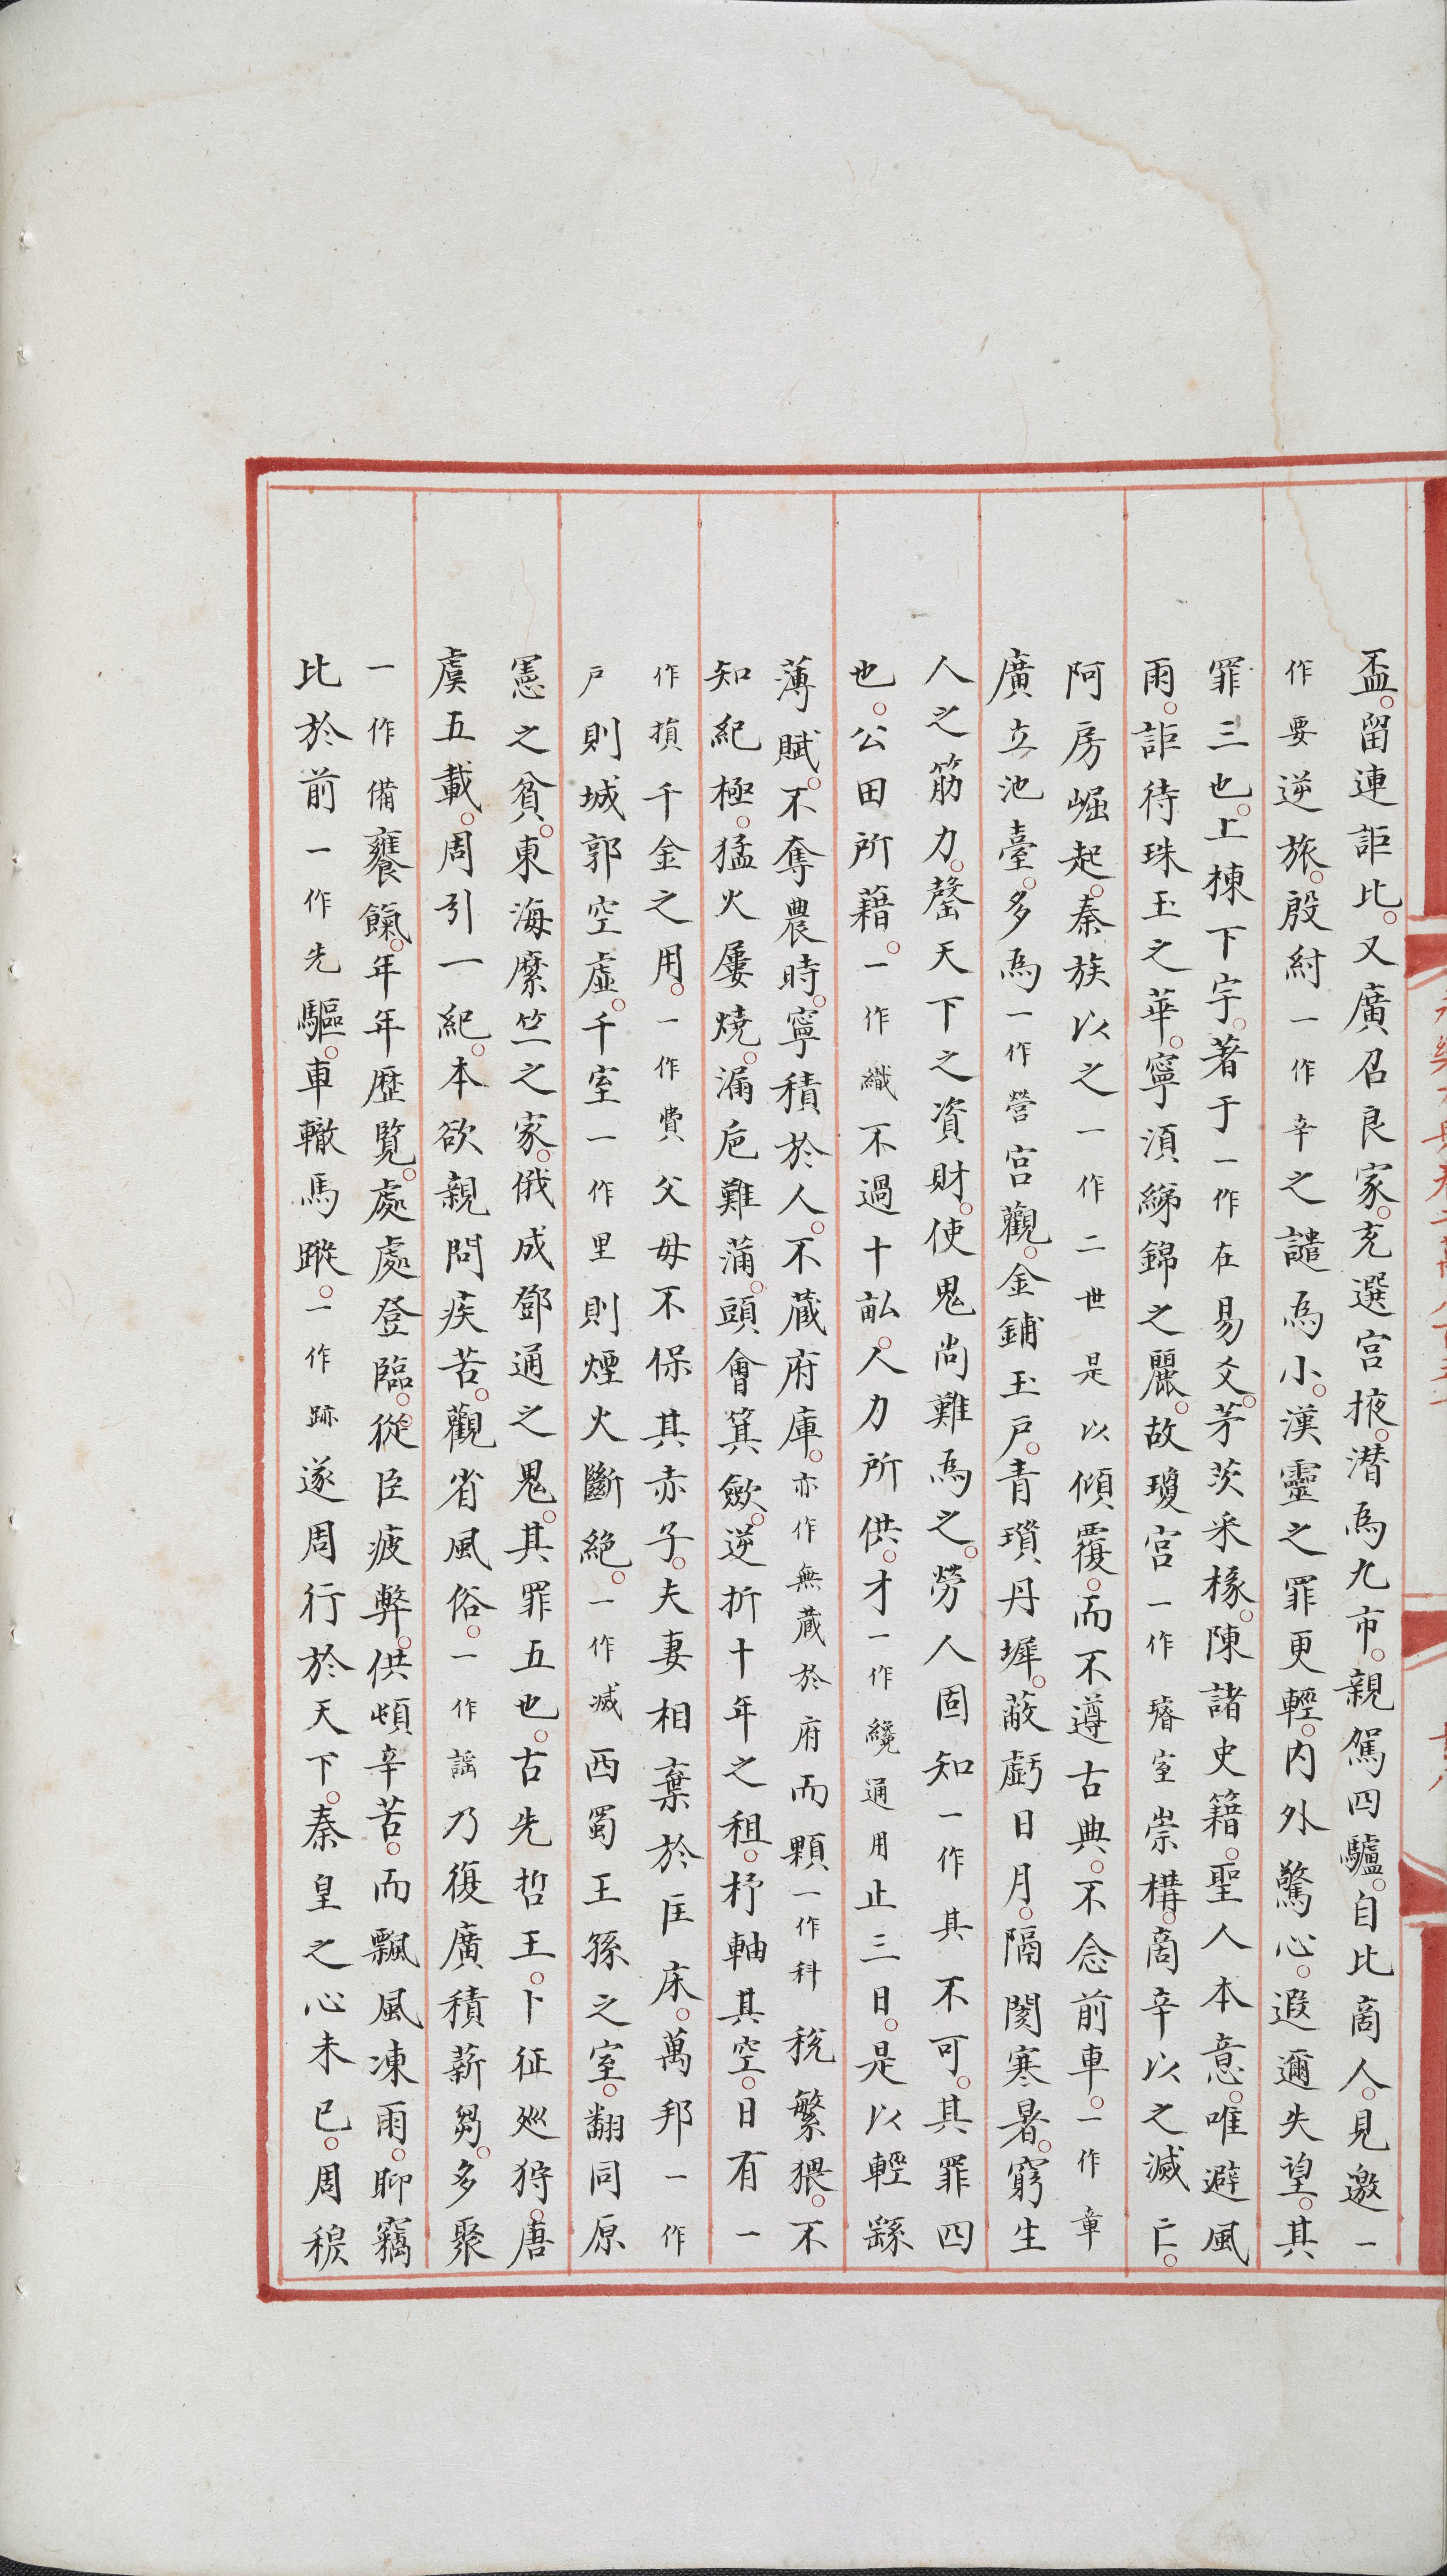 盃。留連詎比。又廣召良家。充選宫掖。潛為九市。親駕四驢。自比商人。見邀一
作要逆旅。殷紂一作辛之譴為小。漢靈之罪更輕。内外驚心。遐邇失望。其
罪三也。上棟下宇。著于一作在易爻。茅茨采椽。陳諸史籍。聖人本意。唯避風
雨。詎待珠玉之華。寧湏綈錦之麗。故瓊宫一作璿室崇構。商辛以之滅亡。
阿房崛起。秦族以之一作二世是以傾覆。而不遵古典。不念前車。一作章
廣立池臺。多為一作營宫觀。金鋪玉户。青瑣丹墀。蔽虧日月。隔閡寒暑。窮生
人之筋力。罄天下之資財。使鬼尚難為之。勞人固知一作其不可。其罪四
也。公田所藉。一作織不過十畝。人力所供。才一作纔通用止三日。是以輕繇
薄賦。不奪農時。寧積於人。不蔵府庫。亦作無蔵於府而顆一作科税繁猥。不
知紀極。猛火屢燒。漏巵難蒲。頭會箕歛。逆折十年之租。杼軸其空。日有一
作損千金之用。一作費父母不保其赤子。夫妻相棄於匡床。萬邦一作
户則城郭空虛。千室一作里則煙火斷絶。一作滅西蜀王孫之室。翻同原
憲之貧。東海縻竺之家。俄成鄧通之鬼。其罪五也。古先哲王。卜征巡狩。唐
虞五載。周引一紀。本欲親問疾苦。觀省風俗。一作謡乃復廣積薪芻。多聚
一作備饔餼。年年歷覽。處處登臨。從臣疲弊。供頓辛苦。而飄風凍雨。聊竊
比於前一作先驅。車轍馬蹤。一作跡遂周行於天下。秦皇之心未已。周穆